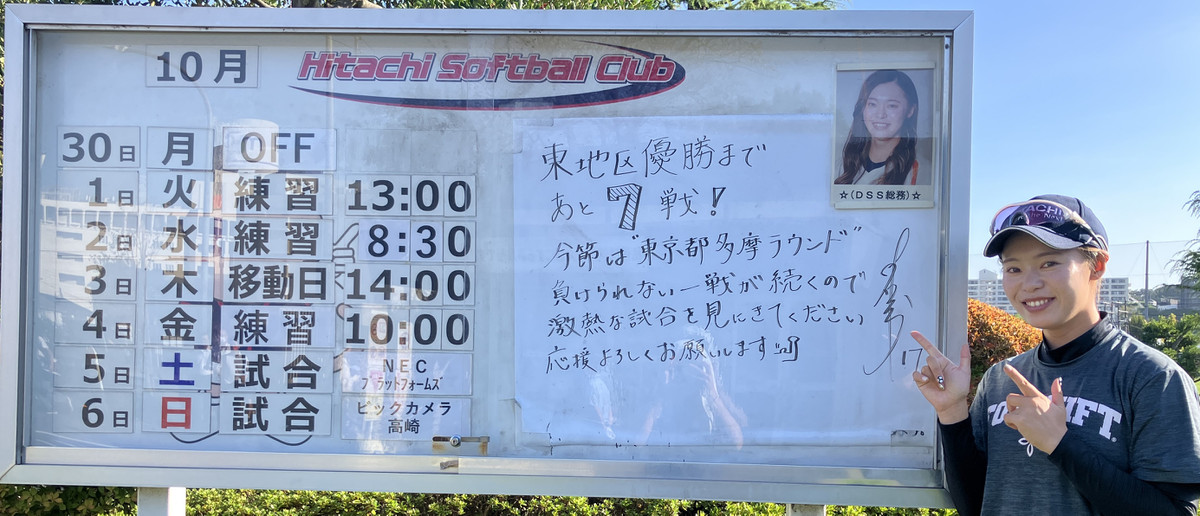 10月
Hitachi Softball Club
30日 月 OFF
1日 火 練習 13:00
2日 水 練習 8:30
3日 木 移動日 14:00
4日 金 練習 10:00
5日 土 試合 NEC プラットフォームズ
6日 日 試合 ビックカメラ 高崎
東地区優勝まで
あと7戦!
今節は"東京都多摩ラウンド"
負けられない一戦が続くので
激熱な試合を見にきてください
応援よろしくお願いします
17
☆(DSS総務)☆